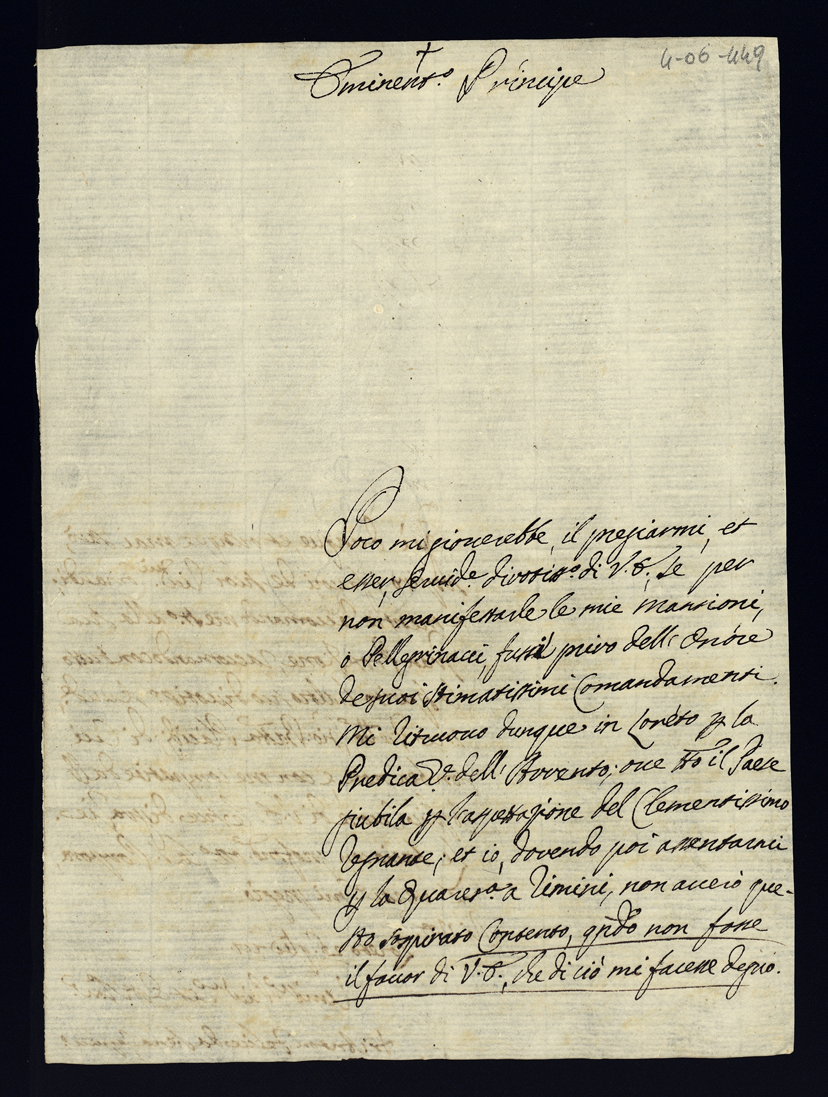 4-06-449
†
Eminent.o Principe
Poco mi gioverebbe, il pregiarmi, et
esser, Servid.e divotiss.o di V.E., se per
non manifestarle le mie Mansioni,
o Pellegrinacci, fussi privo dell' Onóre
de suoi stimatissimi Comandamenti.
Mi ritruovo dunque in Loréto p la
Predica dell' Avvento; ove tto il Paese
giubila p l'aspettazione del Clementissimo
Regnante; et io, dovendo poi assentarmi
p la Quares.a a Rimini, non averò que-
sto sospirato Contento, qñdo non fosse
il favor di V.E., che di ciò mi facesse degno.